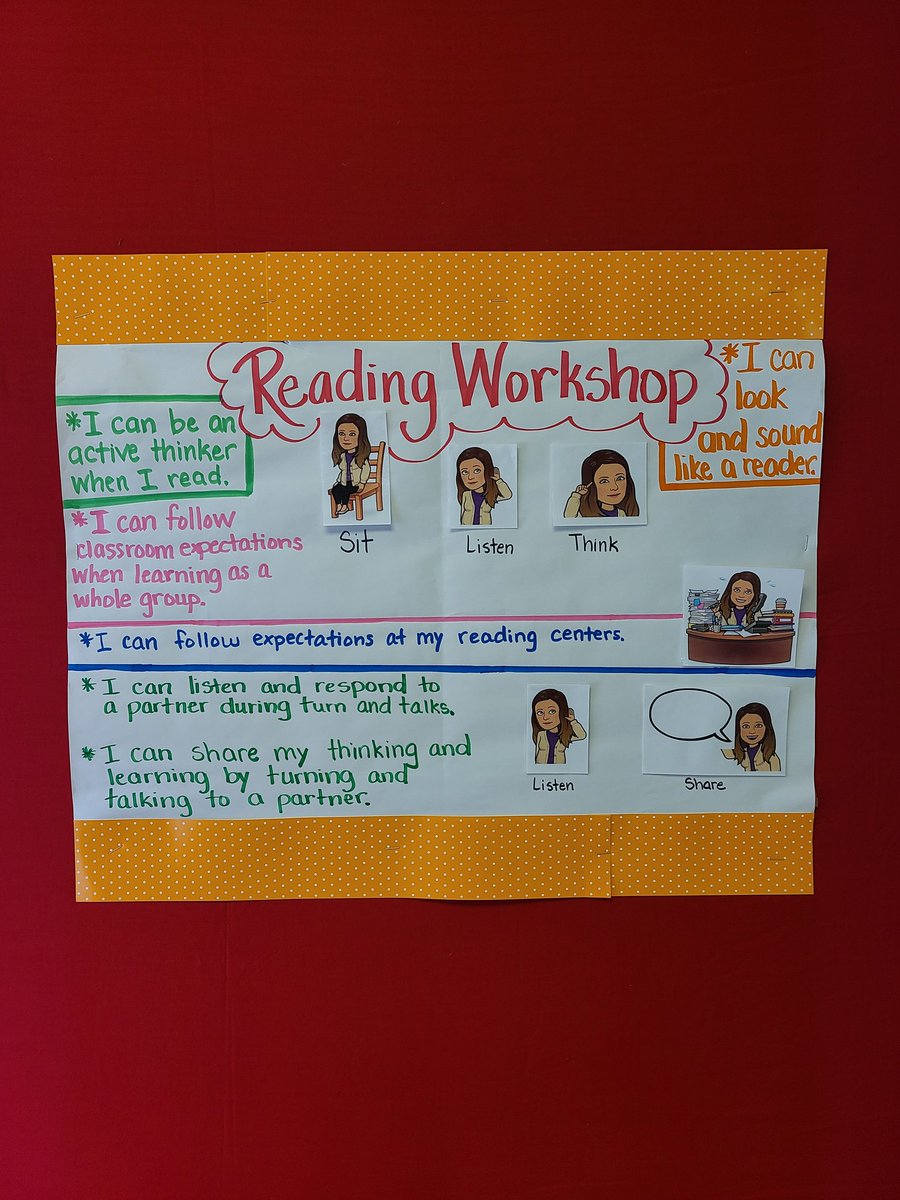 Reading Workshop
*I can be an
active thinker
when I read.
*I can
look
and sound
like a reader.
*I can follow
classroom expectations
when learning as a
whole group.
Sit
Listen
Think
*I can follow expectations at my reading centers.
* I can listen and respond to
a partner during turn and talks.
* I can share my thinking and
learning by turning and
talking to a partner.
Listen
Share